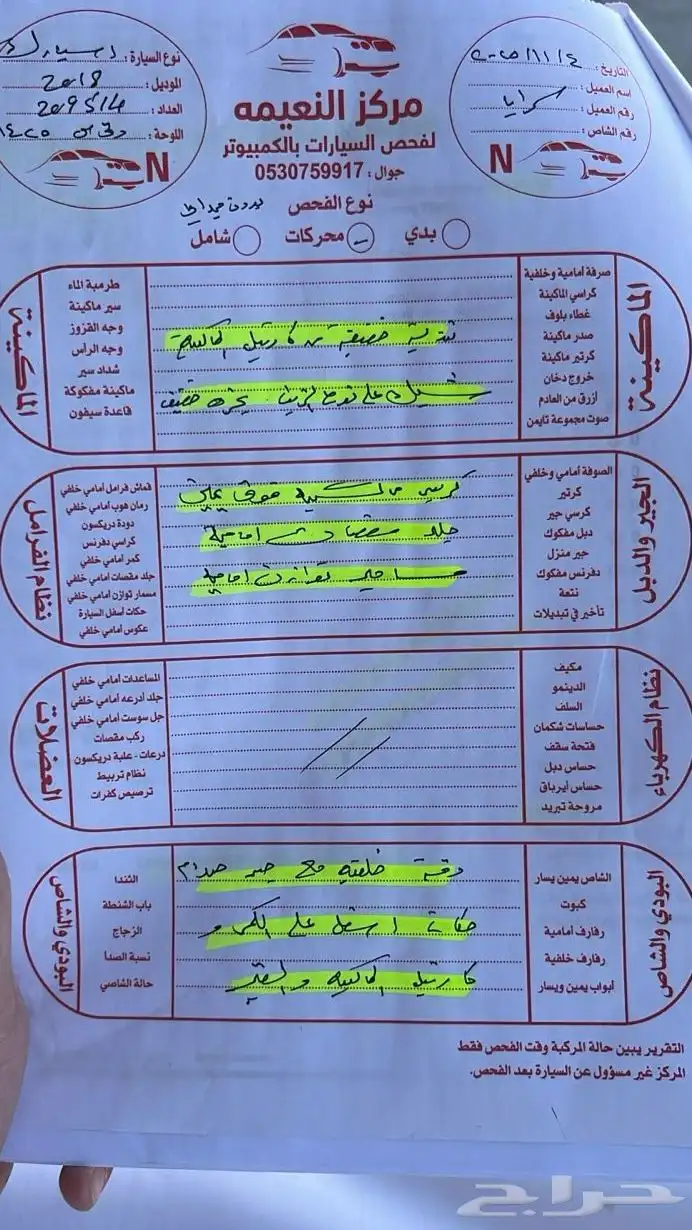 التاريخ: ٢٠٢٥/١١/٤
اسم العميل:
رقم العميل:
رقم الشاص:
N
مركز النعيمه
لفحص السيارات بالكمبيوتر
جوال: 0530759917
نوع السيارة:
الموديل: 2018
العداد: 209514
اللوحة:
N
نوع الفحص
بدي
محركات
شامل
الماكينة
صرفة أمامية وخلفية
كراسي الماكينة
غطاء بلوف
صدر ماكينة
كرتير ماكينة
خروج دخان
أزرق من العادم
صوت مجموعة تايمن
خفيفة من كارتيل الماكينة
شيك على خفيف
طرمبة الماء
سير ماكينة
وجه القزوز
وجه الرأس
شداد سير
ماكينة مفكوكة
قاعدة سيفون
الماكينة
الجير والدبل
الصوفة أمامي وخلفي
كرتير
كرسي جير
دبل مفكوك
جير منزل
دفرنس مفكوك
نتعة
تأخير في تبديلات
كرسي ماكينة فوق يمين
جلد مقصات امامية
مسامير توازن امامية
قماش فرامل أمامي خلفي
رمان هوب أمامي خلفي
دودة دريكسون
كراسي دفرنس
كمر أمامي خلفي
جلد مقصات أمامي خلفي
مسمار توازن أمامي خلفي
حكات أسفل السيارة
عكوس أمامي خلفي
نظام الفرامل
نظام الكهرباء
مكيف
الدينمو
السلف
حساسات شكمان
فتحة سقف
حساس دبل
حساس أيرباق
مروحة تبريد
المساعدات أمامي خلفي
جلد أذرعه أمامي خلفي
جل سوست أمامي خلفي
ركب مقصات
درعات - علبة دريكسون
نظام تربيط
ترصيص كفرات
العضلات
البودي والشاص
الشاص يمين يسار
كبوت
رفارف أمامية
رفارف خلفية
أبواب يمين ويسار
دقة خلفية مع جسر صدام
حكات اسفل على الكمر و
كارتيل الماكينة والقير
الشندا
باب الشنطة
الزجاج
نسبة الصدأ
حالة الشاصي
البودي والشاص
التقرير يبين حالة المركبة وقت الفحص فقط
المركز غير مسؤول عن السيارة بعد الفحص.
حراج